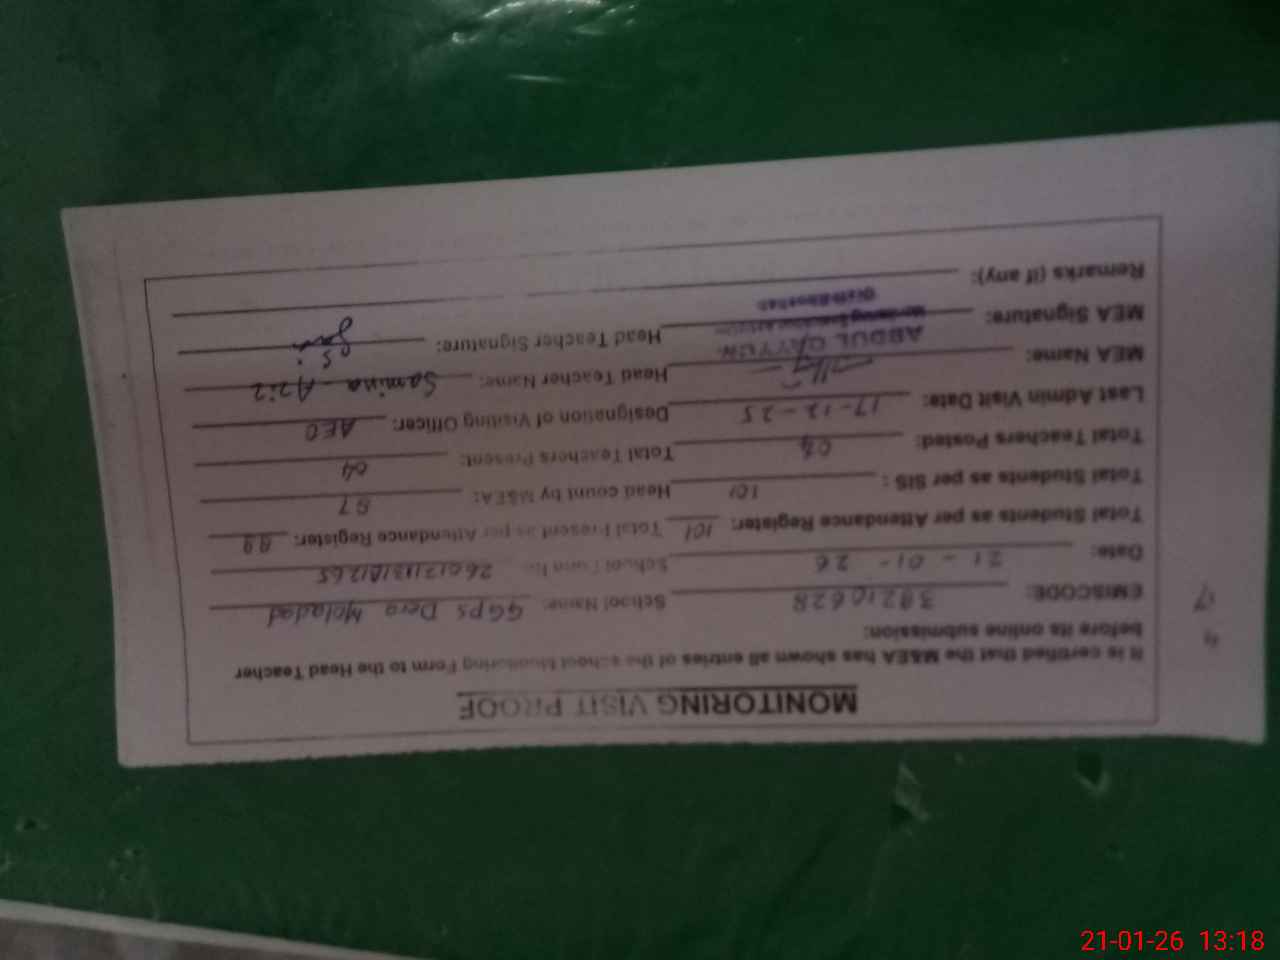 MONITORING VISIT PROOF
It is certified that the M&EA has shown all entries of the school Monitoring Form to the Head Teacher
before its online submission:
EMISCODE: 38210628 School Name: GGPS Dera Moladad
Date: 21 - 01 - 26 School Form No:
Total Students as per Attendance Register: 101 Total Present as per Attendance Register:
Total Students as per SIS : 101 Head count by M&EA:
Total Teachers Posted: Total Teachers Present: 04
Last Admin Visit Date: 17-12-25 Designation of Visiting Officer: AEO
MEA Name: Head Teacher Name: Samina Aziz
ABDUL QAYYUM
MEA Signature: Head Teacher Signature:
Remarks (if any):
21-01-26 13:18